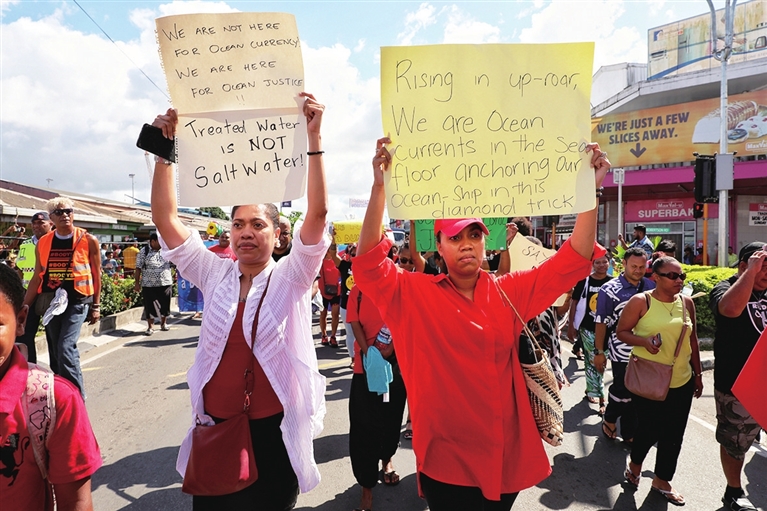 We are not here
for ocean currency
We are here
for ocean justice
!!
Treated Water
is NOT
Salt Water!
Rising in up-roar,
We are Ocean
currents in the Sea
floor anchoring our
ocean-ship in this
diamond trick
WE'RE JUST A FEW
SLICES AWAY.
SUPERBAK